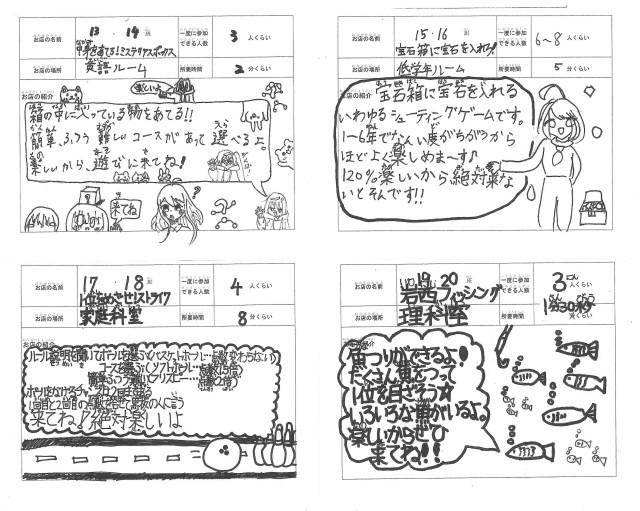 13・14班
お店の名前
中身をあてろ!ミステリアスボックス
一度に参加
できる人数
3 人くらい
お店の場所
英語ルーム
所要時間
2 分くらい
お店の紹介
楽しいよ
箱の中に入っている物をあてる!!
簡単、ふつう、難しいコースがあって選べるよ。
楽しいから、遊びに来てね!
来てね
15・16
お店の名前
宝石箱に宝石を入れろ!
一度に参加
できる人数
6~8 人くらい
お店の場所
低学年ルーム
所要時間
5 分くらい
お店の紹介
宝石箱に宝石を入れる
いわゆるシューティングゲームです。
1~6年でなんい度がちがうから
ほどよく楽しめま~す♪
120%楽しいから絶対来な
いとそんです!!
17 18班
お店の名前
1位をめざせ!ストライク
一度に参加
できる人数
4 人くらい
お店の場所
家庭科室
所要時間
8 分くらい
お店の紹介
ルール説明を聞いてボールを選ぶ(バスケットボール…点数変わらない)
コースを選ぶ(ソフトボール…点数1.5倍)
簡単ふつう難しい
点数2倍)
ボールをなげるチャンスは2回まで
1回目と2回目の点数を
来てね!絶対楽しいよ
19 20
お店の名前
岩西フィッシング
一度に参加
できる人数
3 人くらい
お店の場所
理科室
所要時間
1分30秒
分くらい
お店の紹介
魚つりができるよ!
たくさん魚をつって
1位を目ざそう☆
いろいろな魚がいるよ。
楽しいからぜひ
来てね!!